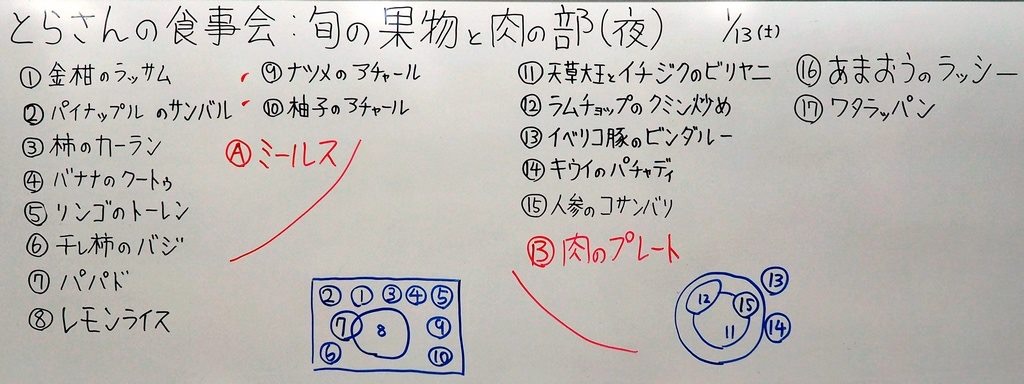 とらさんの食事会：旬の果物と肉の部(夜) 1/13(土)
①金柑のラッサム
②パイナップルのサンバル
③柿のカーラン
④バナナのクートゥ
⑤リンゴのトーレン
⑥干し柿のバジ
⑦パパド
⑧レモンライス
⑨ナツメのアチャール
⑩柚子のアチャール
Ⓐミールス
⑪天草大王とイチジクのビリヤニ
⑫ラムチョップのクミン炒め
⑬イベリコ豚のビンダルー
⑭キウイのパチャディ
⑮人参のコサンバリ
Ⓑ肉のプレート
⑯あまおうのラッシー
⑰ワタラッパン
② ① ③ ④ ⑤
⑦ 8 ⑨
⑥ ⑩
12 ⑮ 11 ⑬
⑭